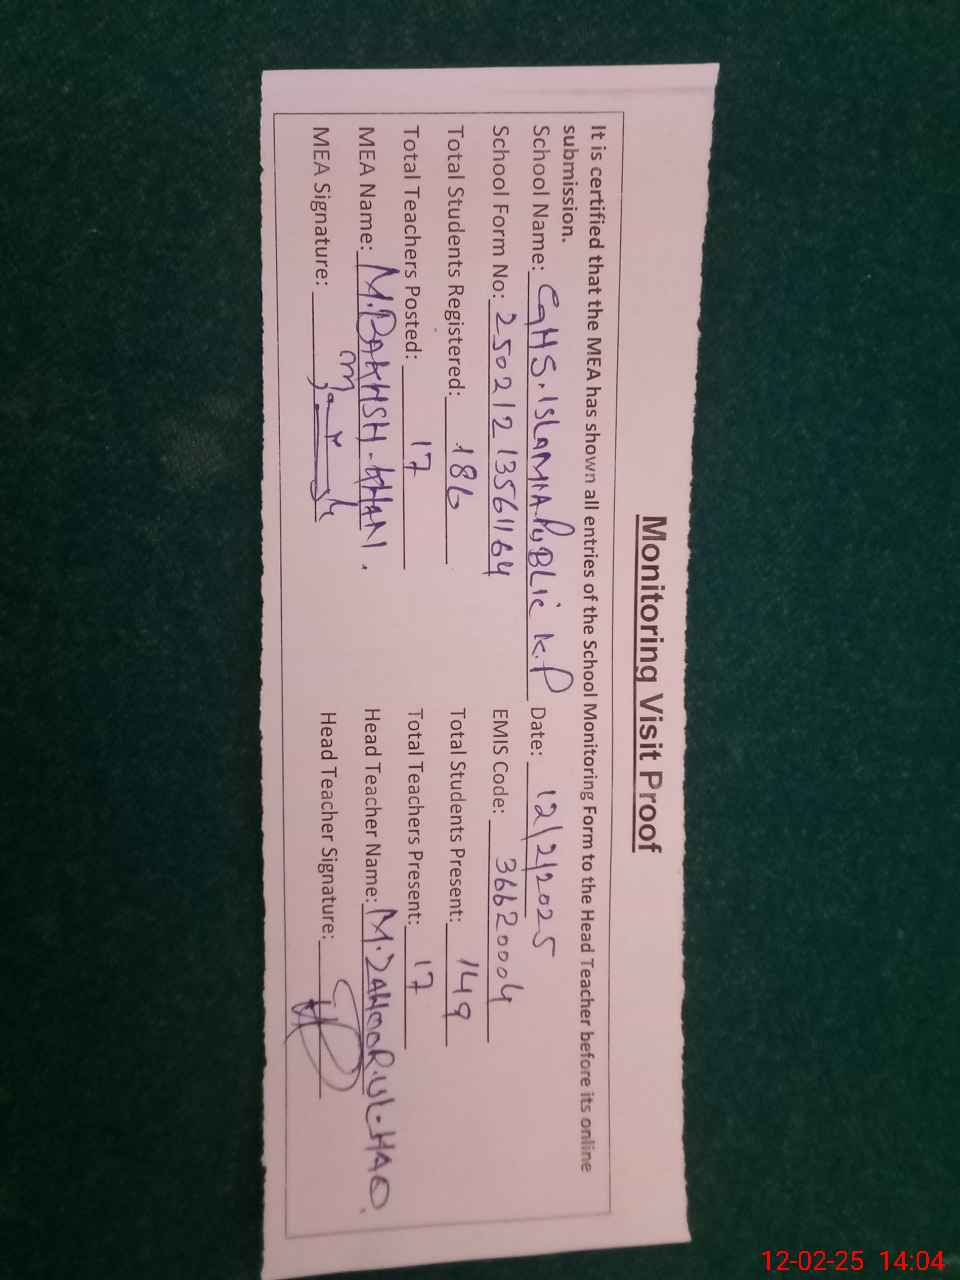 Monitoring Visit Proof
It is certified that the MEA has shown all entries of the School Monitoring Form to the Head Teacher before its online
submission.
School Name: GHS.ISLAMIA.PUBLIC K.P Date: 12/2/2025
School Form No: 25021213561164 EMIS Code: 36620004
Total Students Registered: 186 Total Students Present: 149
Total Teachers Posted: 17 Total Teachers Present: 17
MEA Name: M.BAKHSH.KHAN. Head Teacher Name: M.ZAHOOR.UL.HAQ.
MEA Signature: Head Teacher Signature:
12-02-25 14:04